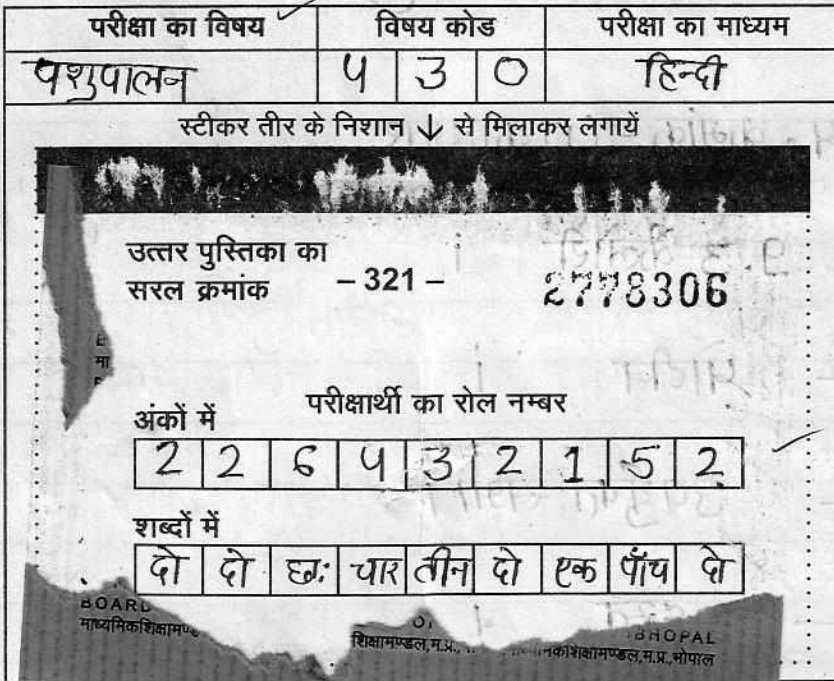 परीक्षा का विषय विषय कोड परीक्षा का माध्यम
पशुपालन 4 3 0 हिन्दी
स्टीकर तीर के निशान ↓ से मिलाकर लगायें
उत्तर पुस्तिका का
सरल क्रमांक – 321 – 2778306
परीक्षार्थी का रोल नम्बर
अंकों में
2 2 6 4 3 2 1 5 2
शब्दों में
दो दो छः चार तीन दो एक पाँच दो
BOARD BHOPAL
माध्यमिकशिक्षामण्ड शिक्षामण्डल,म.प्र., कशिक्षामण्डल,म.प्र.,भोपाल